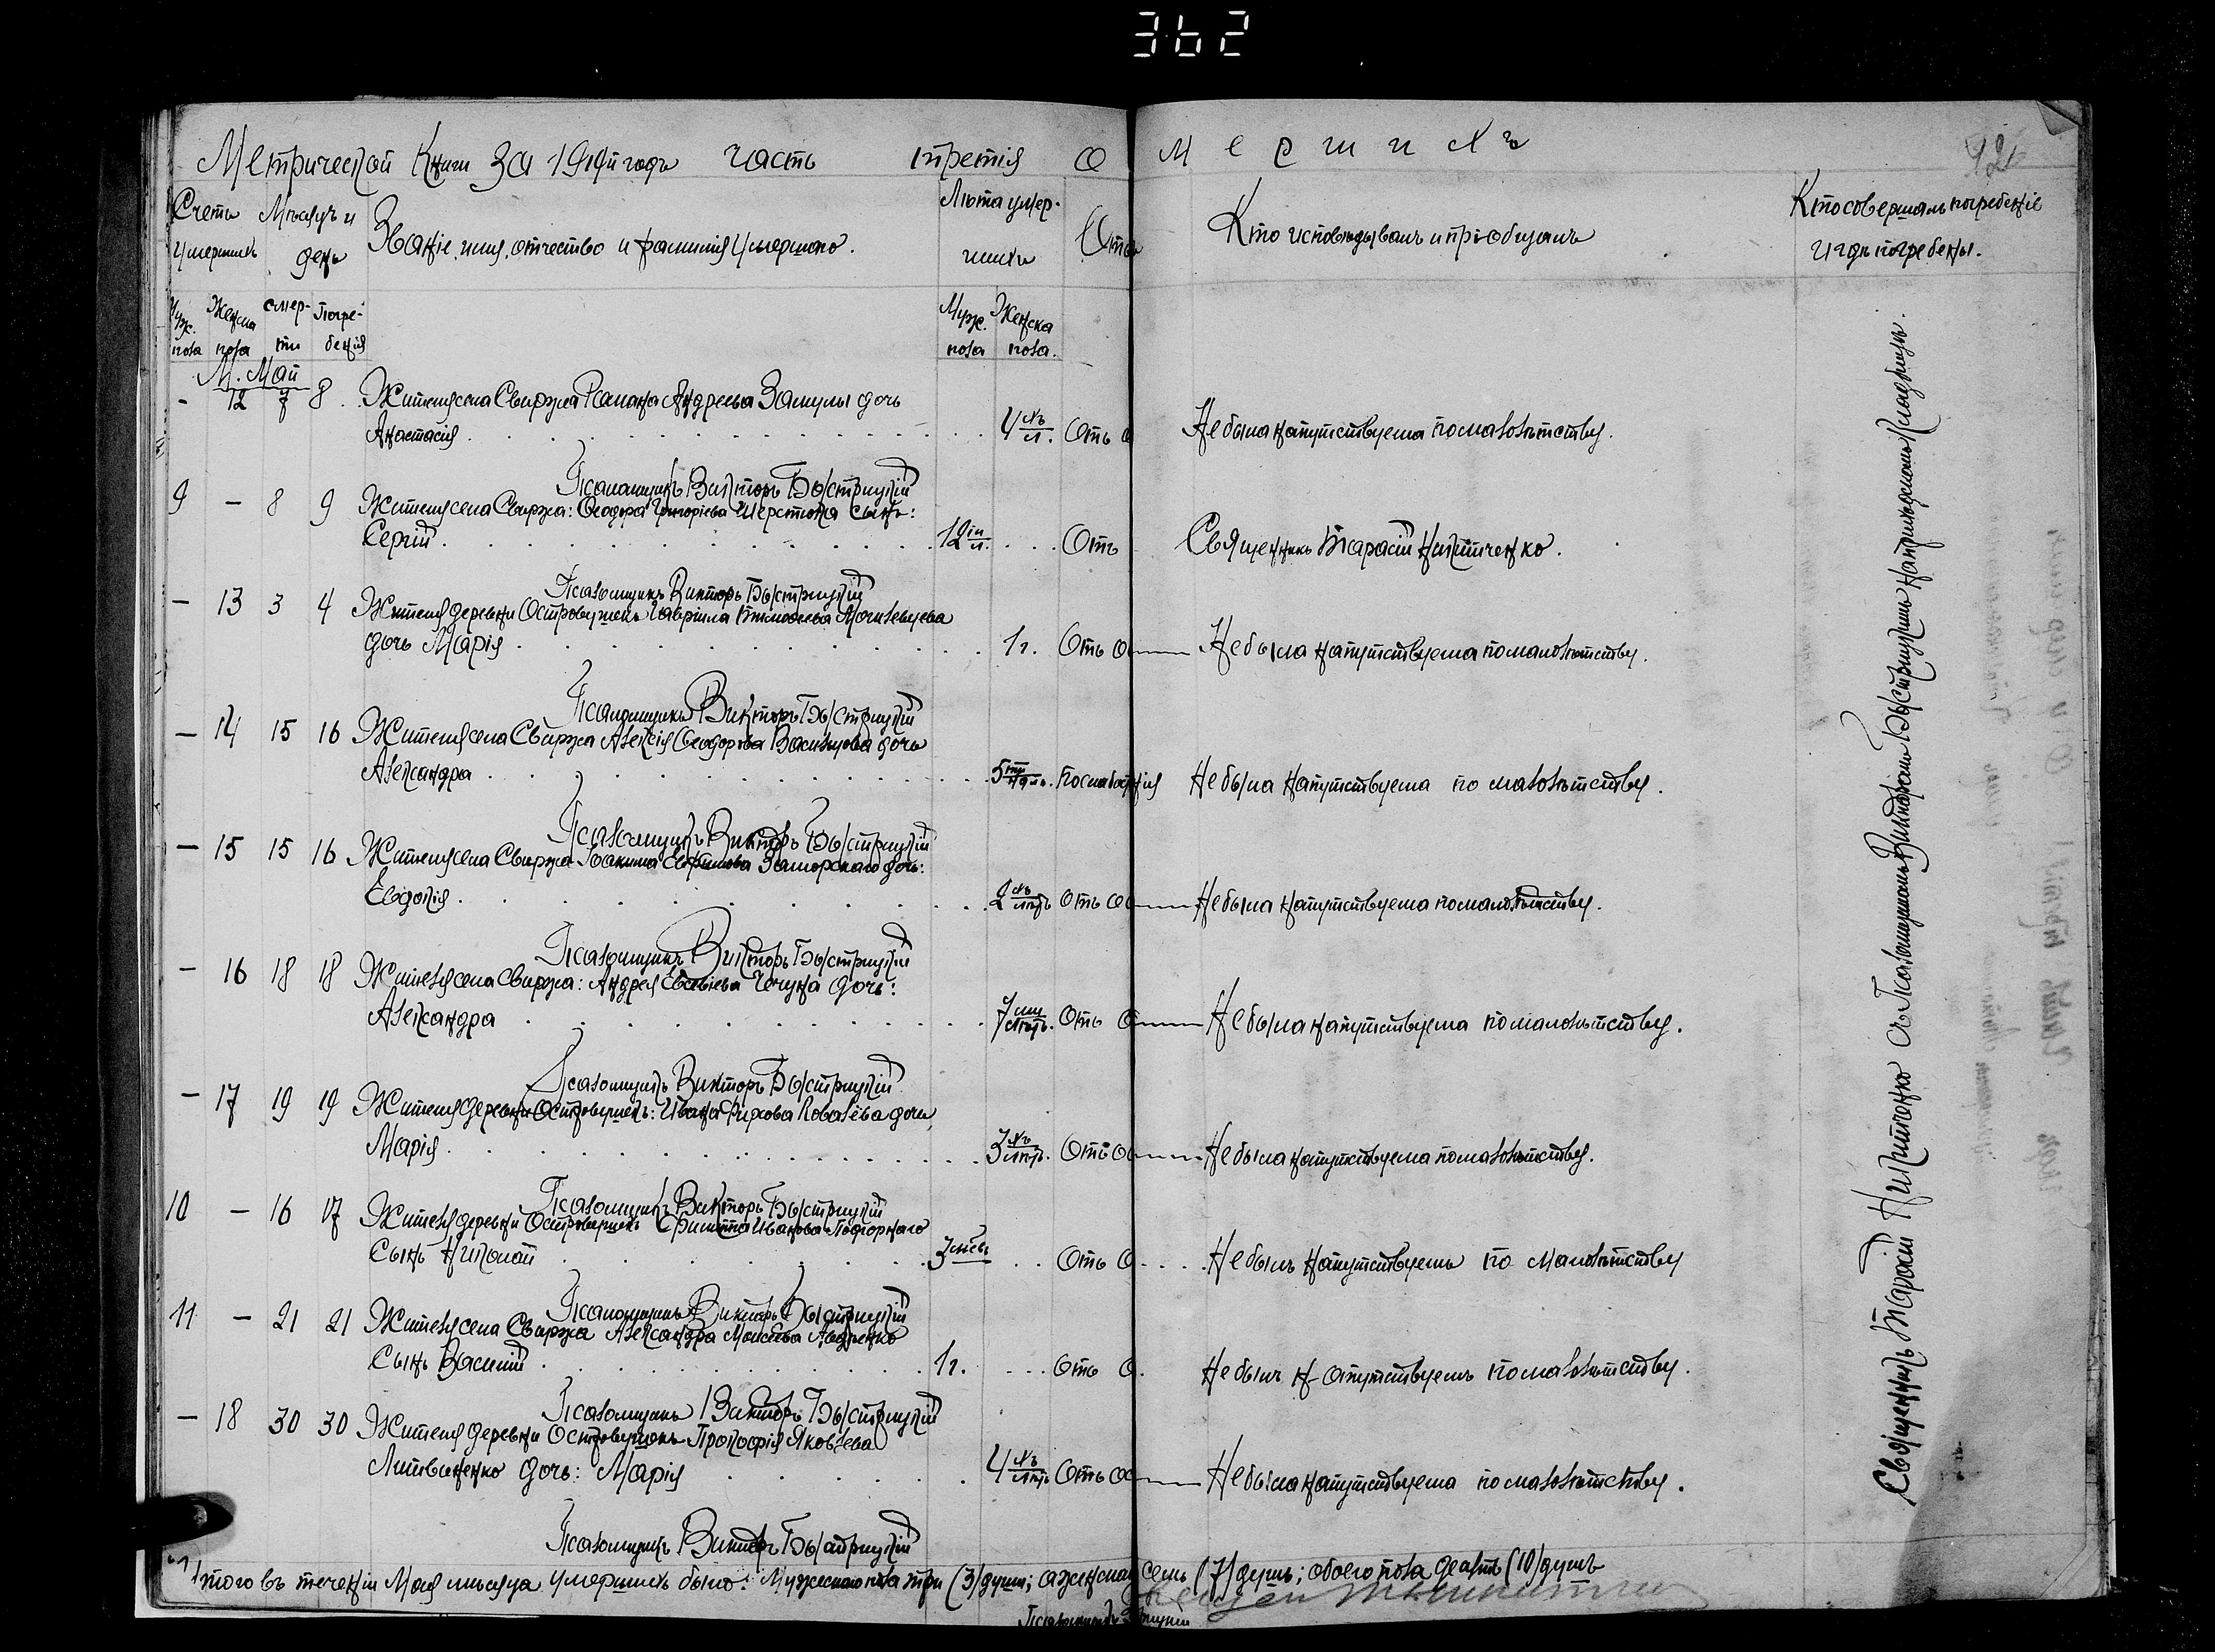 362
Метрической Книги За 1919й годъ часть третія О мершихъ
12
Счетъ умершихъ
Мѣсяцъ и день
Званіе, имя, отчество и фамилія умершаго.
Лѣта умершихъ
Отъ
Кто исповѣдывалъ и пріобщалъ
Кто совершалъ погребеніе и гдѣ погребены.
Муж. пола Женска пола смерти Погребенія
Муж. пола Женска пола.
М. Май
- 12 7 8 Жителя села Свиржа Романа Андреева дочь
Анастасія 4хъ л. Отъ Не была напутствуема по малолѣтству.
Псаломщикъ Викторъ Быстрицкій
9 - 8 9 Жителя села Свиржа: Ѳеодора Григоріева Шерстюка сынъ:
Сергій 12ти л. Отъ Священникъ Тарасій Никитченко.
Псаломщикъ Викторъ Быстрицкій
- 13 3 4 Жителя деревни Островершекъ Гавріила Тимоѳеева дочь
Марія 1 г. Отъ Не была напутствуема по малолѣтству.
Псаломщикъ Викторъ Быстрицкій
- 14 15 16 Жителя села Свиржа Алексія Ѳеодорова дочь
Александра 5ти Не была напутствуема по малолѣтству.
Псаломщикъ Викторъ Быстрицкій
- 15 15 16 Жителя села Свиржа Іоакима Заморскаго дочь:
Евдокія 2хъ лѣтъ Отъ Не была напутствуема по малолѣтству.
Псаломщикъ Викторъ Быстрицкій
- 16 18 18 Жителя села Свиржа: Андрея Евсевіева дочь:
Александра 7ми лѣтъ. Отъ Не была напутствуема по малолѣтству.
Псаломщикъ Викторъ Быстрицкій
- 17 19 19 Жителя деревни Островершекъ: Ивана Ковалева дочь
Марія 3хъ лѣтъ. Отъ Не была напутствуема по малолѣтству.
Псаломщикъ Викторъ Быстрицкій
10 - 16 17 Жителя деревни Островершекъ Филиппа Иванова Подгорнаго
Сынъ Николай 3 мѣс. Отъ Не былъ напутствуемъ по малолѣтству
Псаломщикъ Викторъ Быстрицкій
11 - 21 21 Жителя села Свиржа Александра Моисѣева Авдѣенко
Сынъ Василій 1 г. Отъ Не былъ напутствуемъ по малолѣтству.
Псаломщикъ Викторъ Быстрицкій
- 18 30 30 Жителя деревни Островершекъ Прокофія Яковлева
Литвиненко дочь: Марія 4хъ лѣтъ Отъ Не была напутствуема по малолѣтству.
Псаломщикъ Викторъ Быстрицкій
Итого въ теченіи Мая мѣсяца умершихъ было: Мужескаго пола три (3) души; а женска семь (7) душъ; обоего пола десять (10) душъ
Священникъ Тарасій Никитченко съ Псаломщикомъ Викторомъ Быстрицкимъ на приходскомъ кладбищѣ.